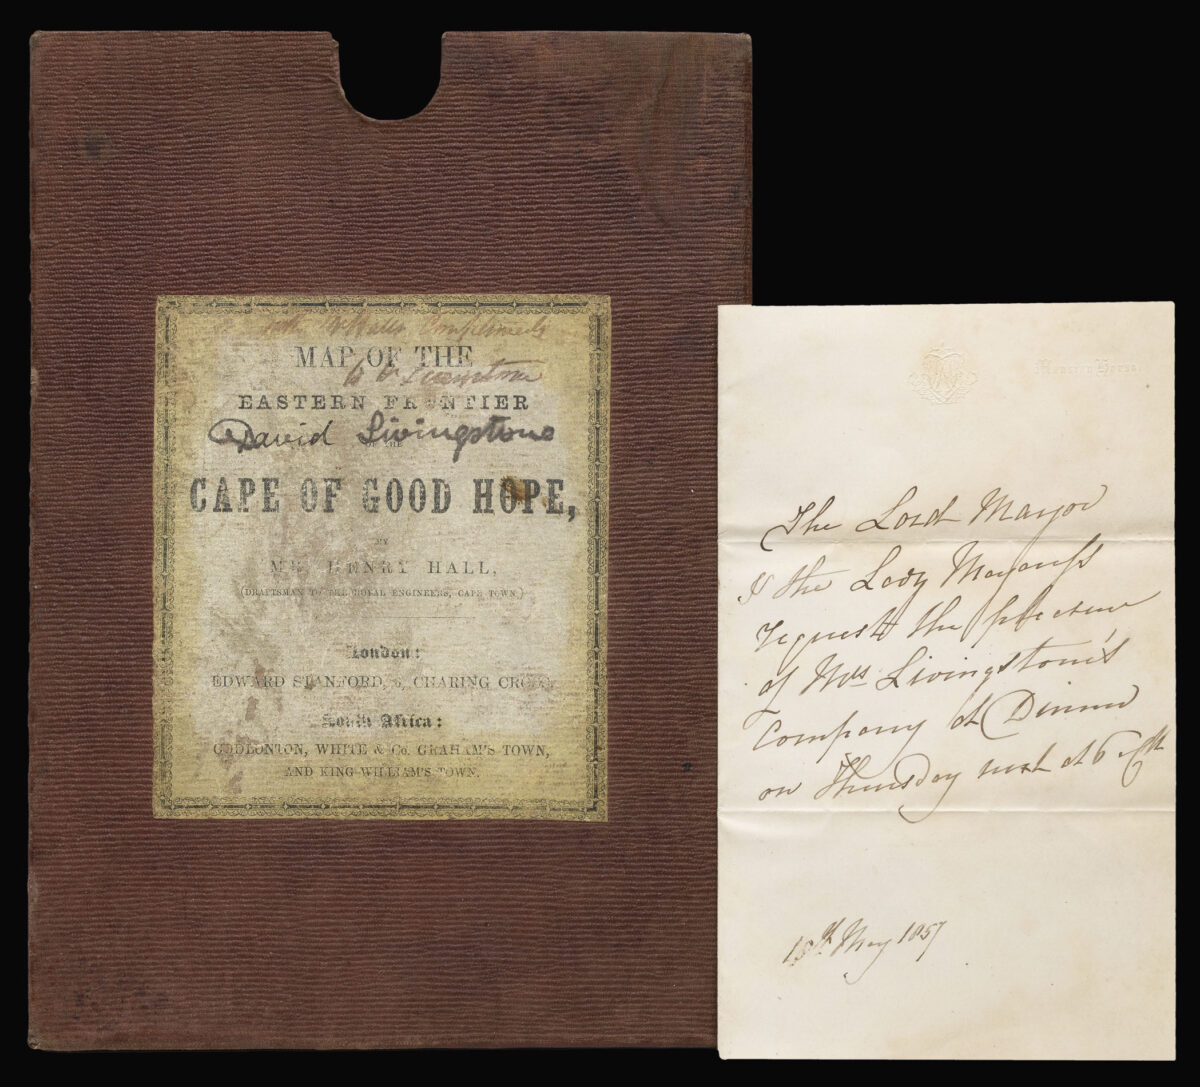 with Mr Halls Compliments
MAP OF THE
to D Livingstone
EASTERN FRONTIER
David Livingstone
OF THE
CAPE OF GOOD HOPE,
BY
MR. HENRY HALL,
(DRAFTSMAN TO THE ROYAL ENGINEERS, CAPE TOWN.)
London:
EDWARD STANFORD, 6, CHARING CROSS.
South Africa:
GODLONTON, WHITE & Co. GRAHAM'S TOWN,
AND KING WILLIAM'S TOWN.
Mansion House
The Lord Mayor
& the Lady Mayoress
request the pleasure
of Mrs Livingston's
Company at Dinner
on Thursday next at 6 oClk
May 1857